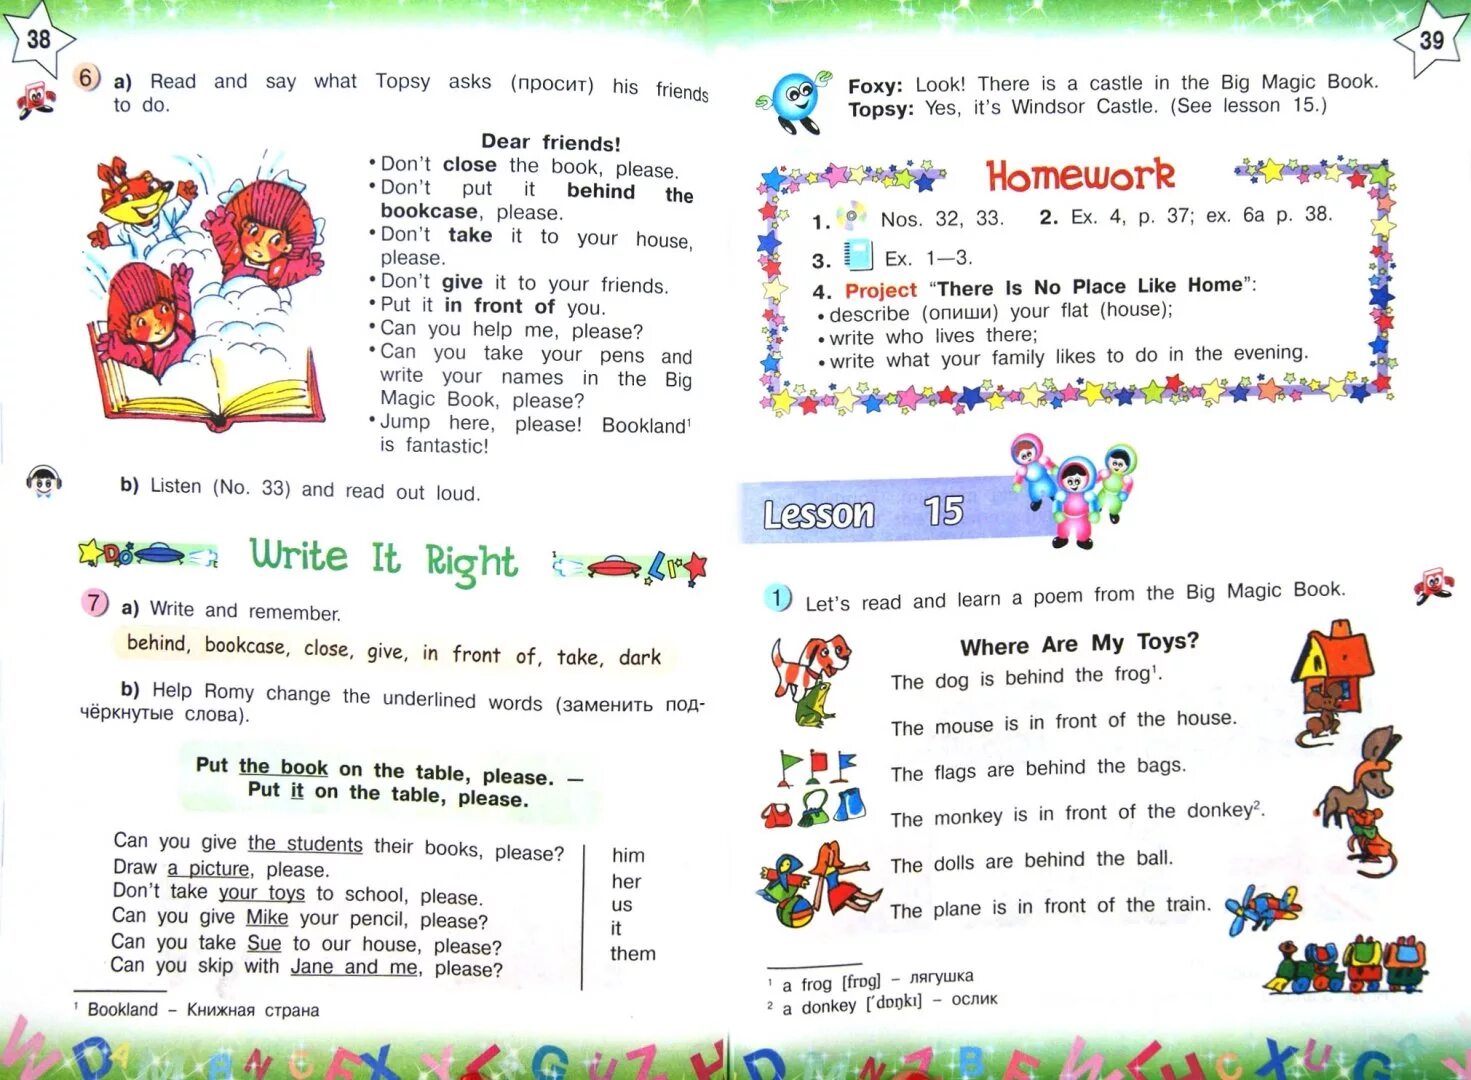 38
6 a) Read and say what Topsy asks (просит) his friends
to do.
Dear friends!
• Don't close the book, please.
• Don't put it behind the
bookcase, please.
• Don't take it to your house,
please.
• Don't give it to your friends.
• Put it in front of you.
• Can you help me, please?
• Can you take your pens and
write your names in the Big
Magic Book, please?
• Jump here, please! Bookland¹
is fantastic!
b) Listen (No. 33) and read out loud.
Write It Right
7 a) Write and remember.
behind, bookcase, close, give, in front of, take, dark
b) Help Romy change the underlined words (заменить под-
чёркнутые слова).
Put the book on the table, please. —
Put it on the table, please.
Can you give the students their books, please?
Draw a picture, please.
Don't take your toys to school, please.
Can you give Mike your pencil, please?
Can you take Sue to our house, please?
Can you skip with Jane and me, please?
him
her
us
it
them
¹ Bookland – Книжная страна
39
Foxy: Look! There is a castle in the Big Magic Book.
Topsy: Yes, it's Windsor Castle. (See lesson 15.)
Homework
1. Nos. 32, 33. 2. Ex. 4, p. 37; ex. 6a p. 38.
3. Ex. 1—3.
4. Project "There Is No Place Like Home":
• describe (опиши) your flat (house);
• write who lives there;
• write what your family likes to do in the evening.
Lesson 15
1 Let's read and learn a poem from the Big Magic Book.
Where Are My Toys?
The dog is behind the frog¹.
The mouse is in front of the house.
The flags are behind the bags.
The monkey is in front of the donkey².
The dolls are behind the ball.
The plane is in front of the train.
¹ a frog [frɒg] – лягушка
² a donkey [ˈdɒŋkɪ] – ослик